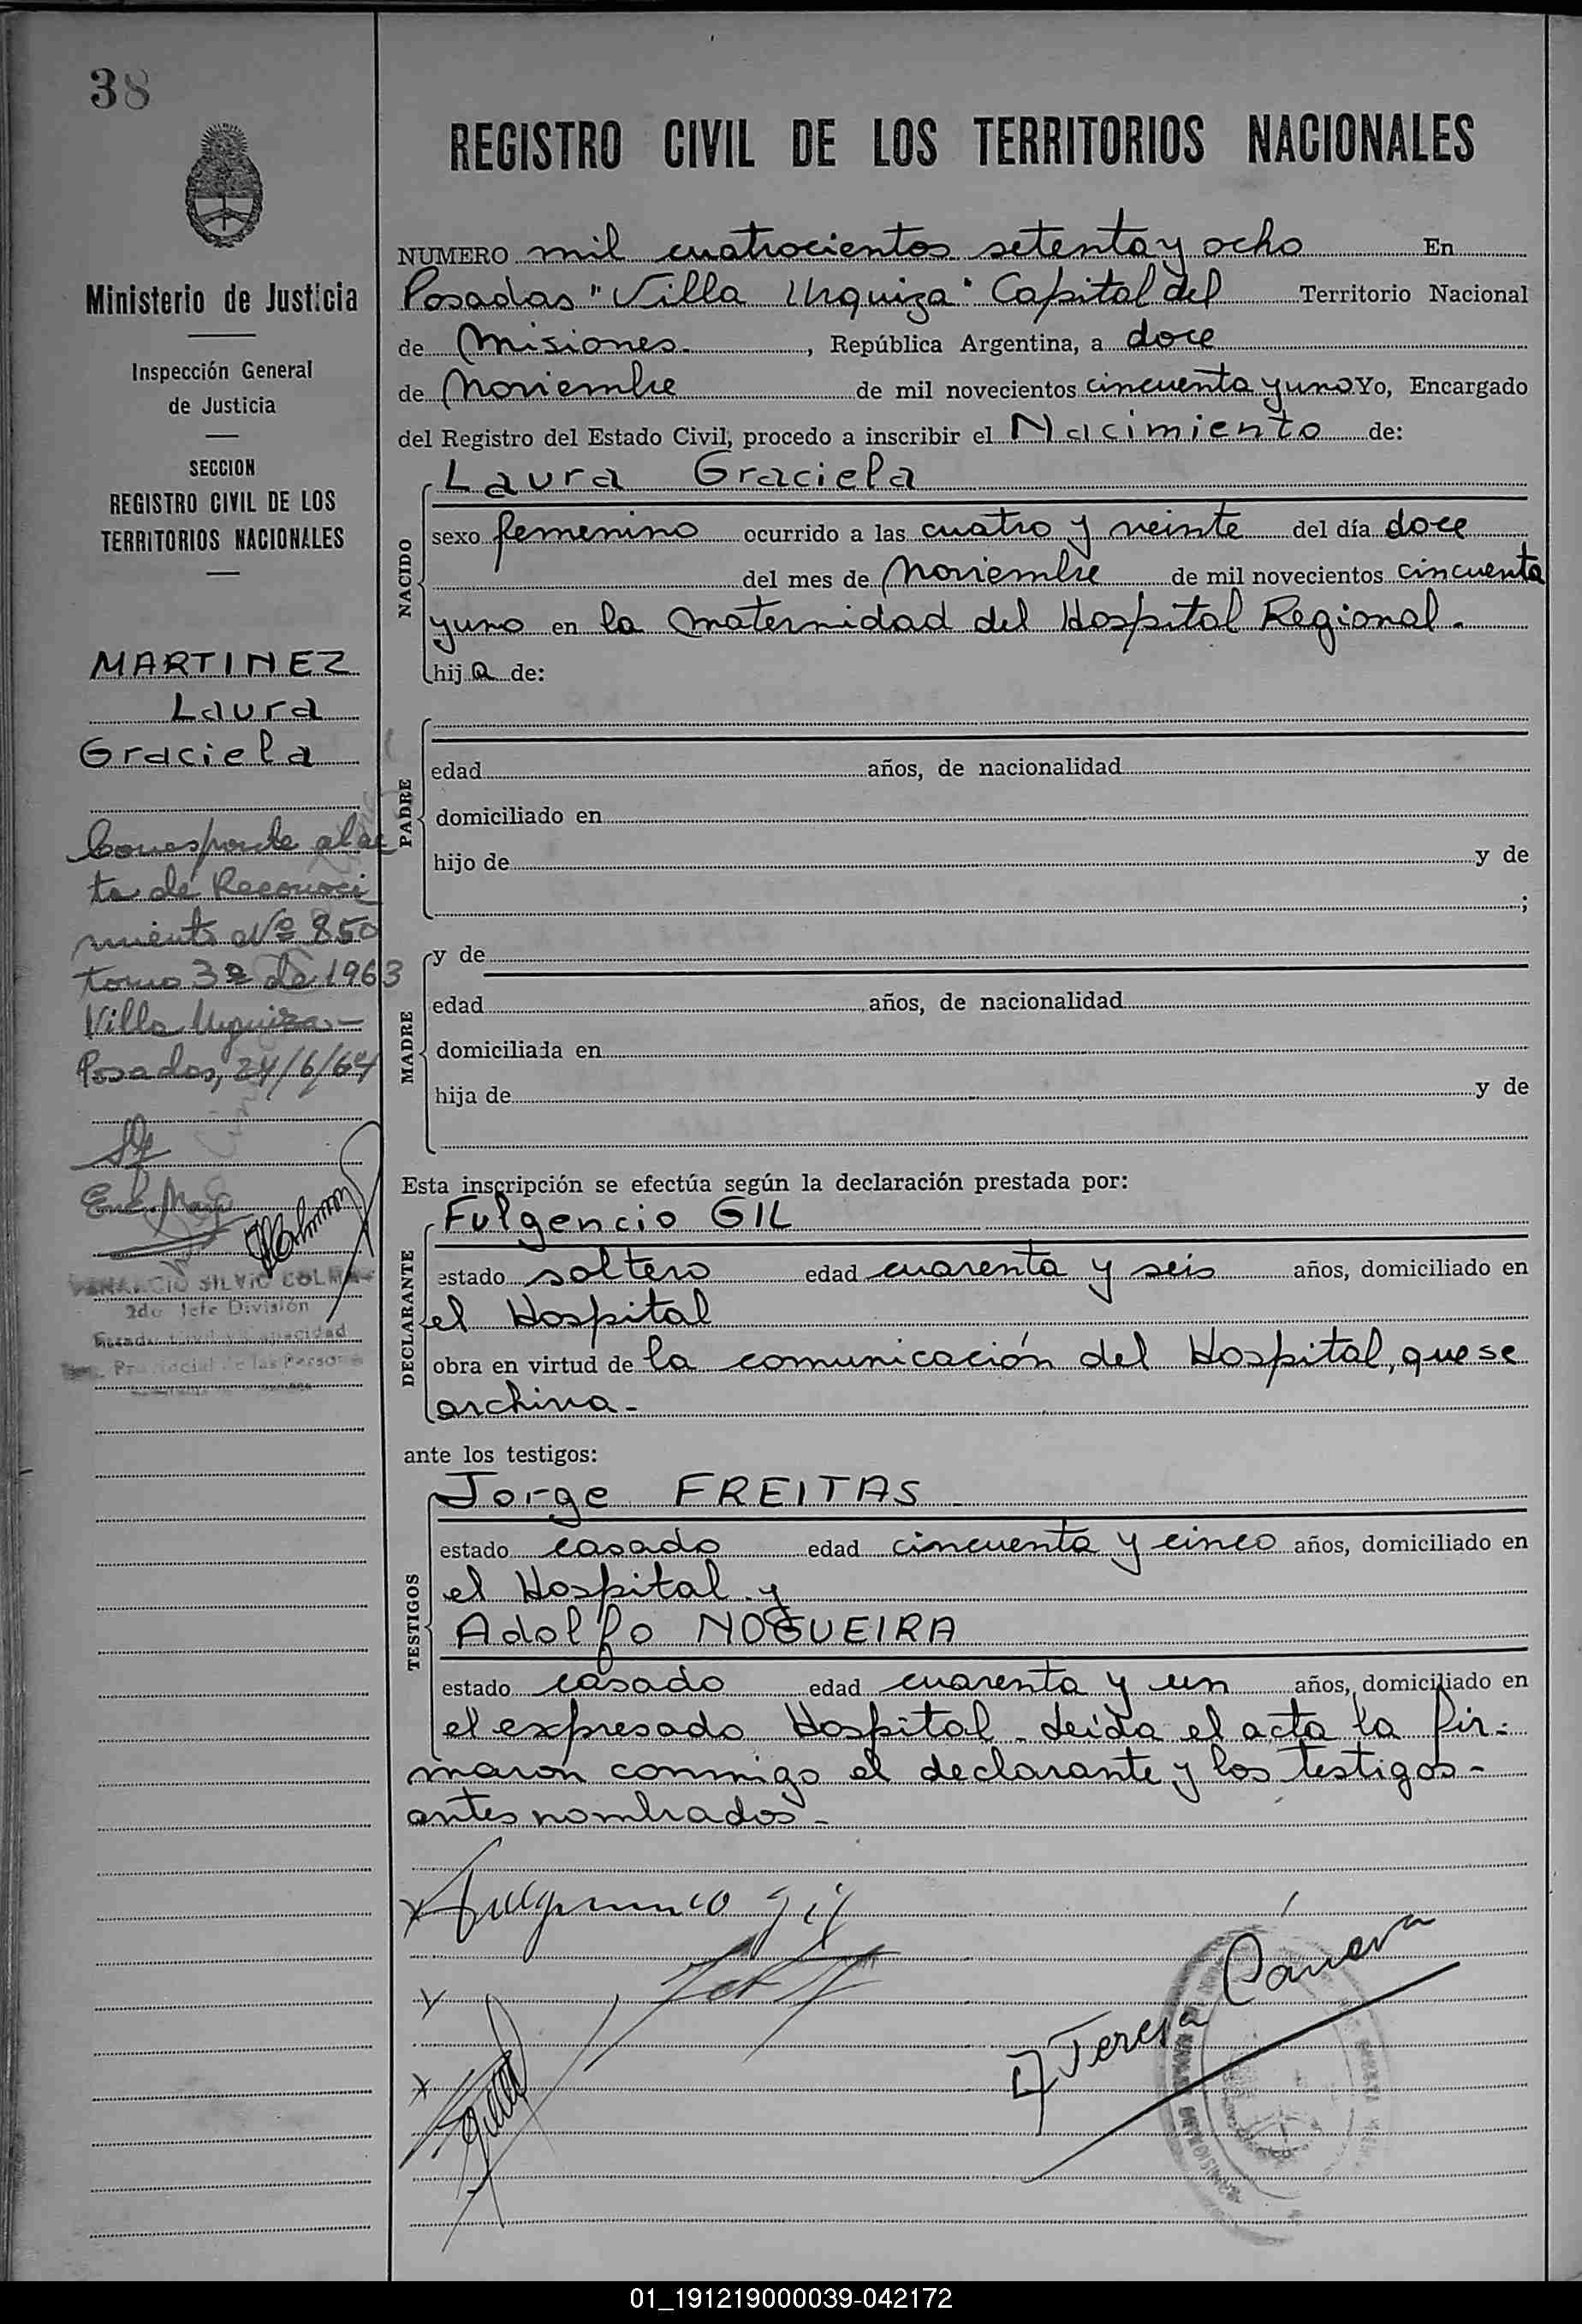 38
REGISTRO CIVIL DE LOS TERRITORIOS NACIONALES
Ministerio de Justicia
Inspección General
de Justicia
SECCION
REGISTRO CIVIL DE LOS
TERRITORIOS NACIONALES
MARTINEZ
Laura
Graciela
Corresponde al ac
ta de Reconoci
miento Nº 850
tomo 3º de 1963
Villa Urquiza.-
Posadas, 24/6/64
SILVIO COLMA
2do Jefe División
NUMERO mil cuatrocientos setenta y ocho En
Posadas "Villa Urquiza" Capital del Territorio Nacional
de Misiones. , República Argentina, a doce
de Noviembre de mil novecientos cincuenta y uno Yo, Encargado
del Registro del Estado Civil, procedo a inscribir el Nacimiento de:
NACIDO
Laura Graciela
sexo femenino ocurrido a las cuatro y veinte del día doce
del mes de Noviembre de mil novecientos cincuenta
y uno en la Maternidad del Hospital Regional.
hija de:
PADRE
edad años, de nacionalidad
domiciliado en
hijo de y de
;
MADRE
y de
edad años, de nacionalidad
domiciliada en
hija de y de
Esta inscripción se efectúa según la declaración prestada por:
DECLARANTE
Fulgencio GIL
estado soltero edad cuarenta y seis años, domiciliado en
el Hospital
obra en virtud de la comunicación del Hospital, que se
archiva-
ante los testigos:
TESTIGOS
Jorge FREITAS
estado casado edad cincuenta y cinco años, domiciliado en
el Hospital y
Adolfo NOGUEIRA
estado casado edad cuarenta y un años, domiciliado en
el expresado Hospital. Leída el acta la fir-
maron conmigo el declarante y los testigos-
antes nombrados-
Fulgencio Gil
Teresa
01_191219000039-042172